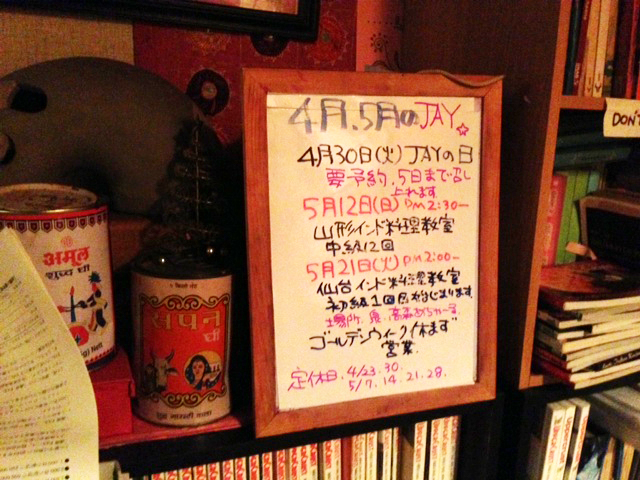 4月.5月のJAY☆
4月30日(火)JAYの日
要予約.5日まで召し
上れます
5月12日(日)PM2:30-
山形インド料理教室
中級12回
5月21日(火)PM2:00-
仙台インド料理教室
初級1回目始じまります
場所
ゴールデンウィーク休まず
営業.
定休日.4/23.30.
5/7.14.21.28.
अमूल
शुध्द घी
सपन
घी
DON'T